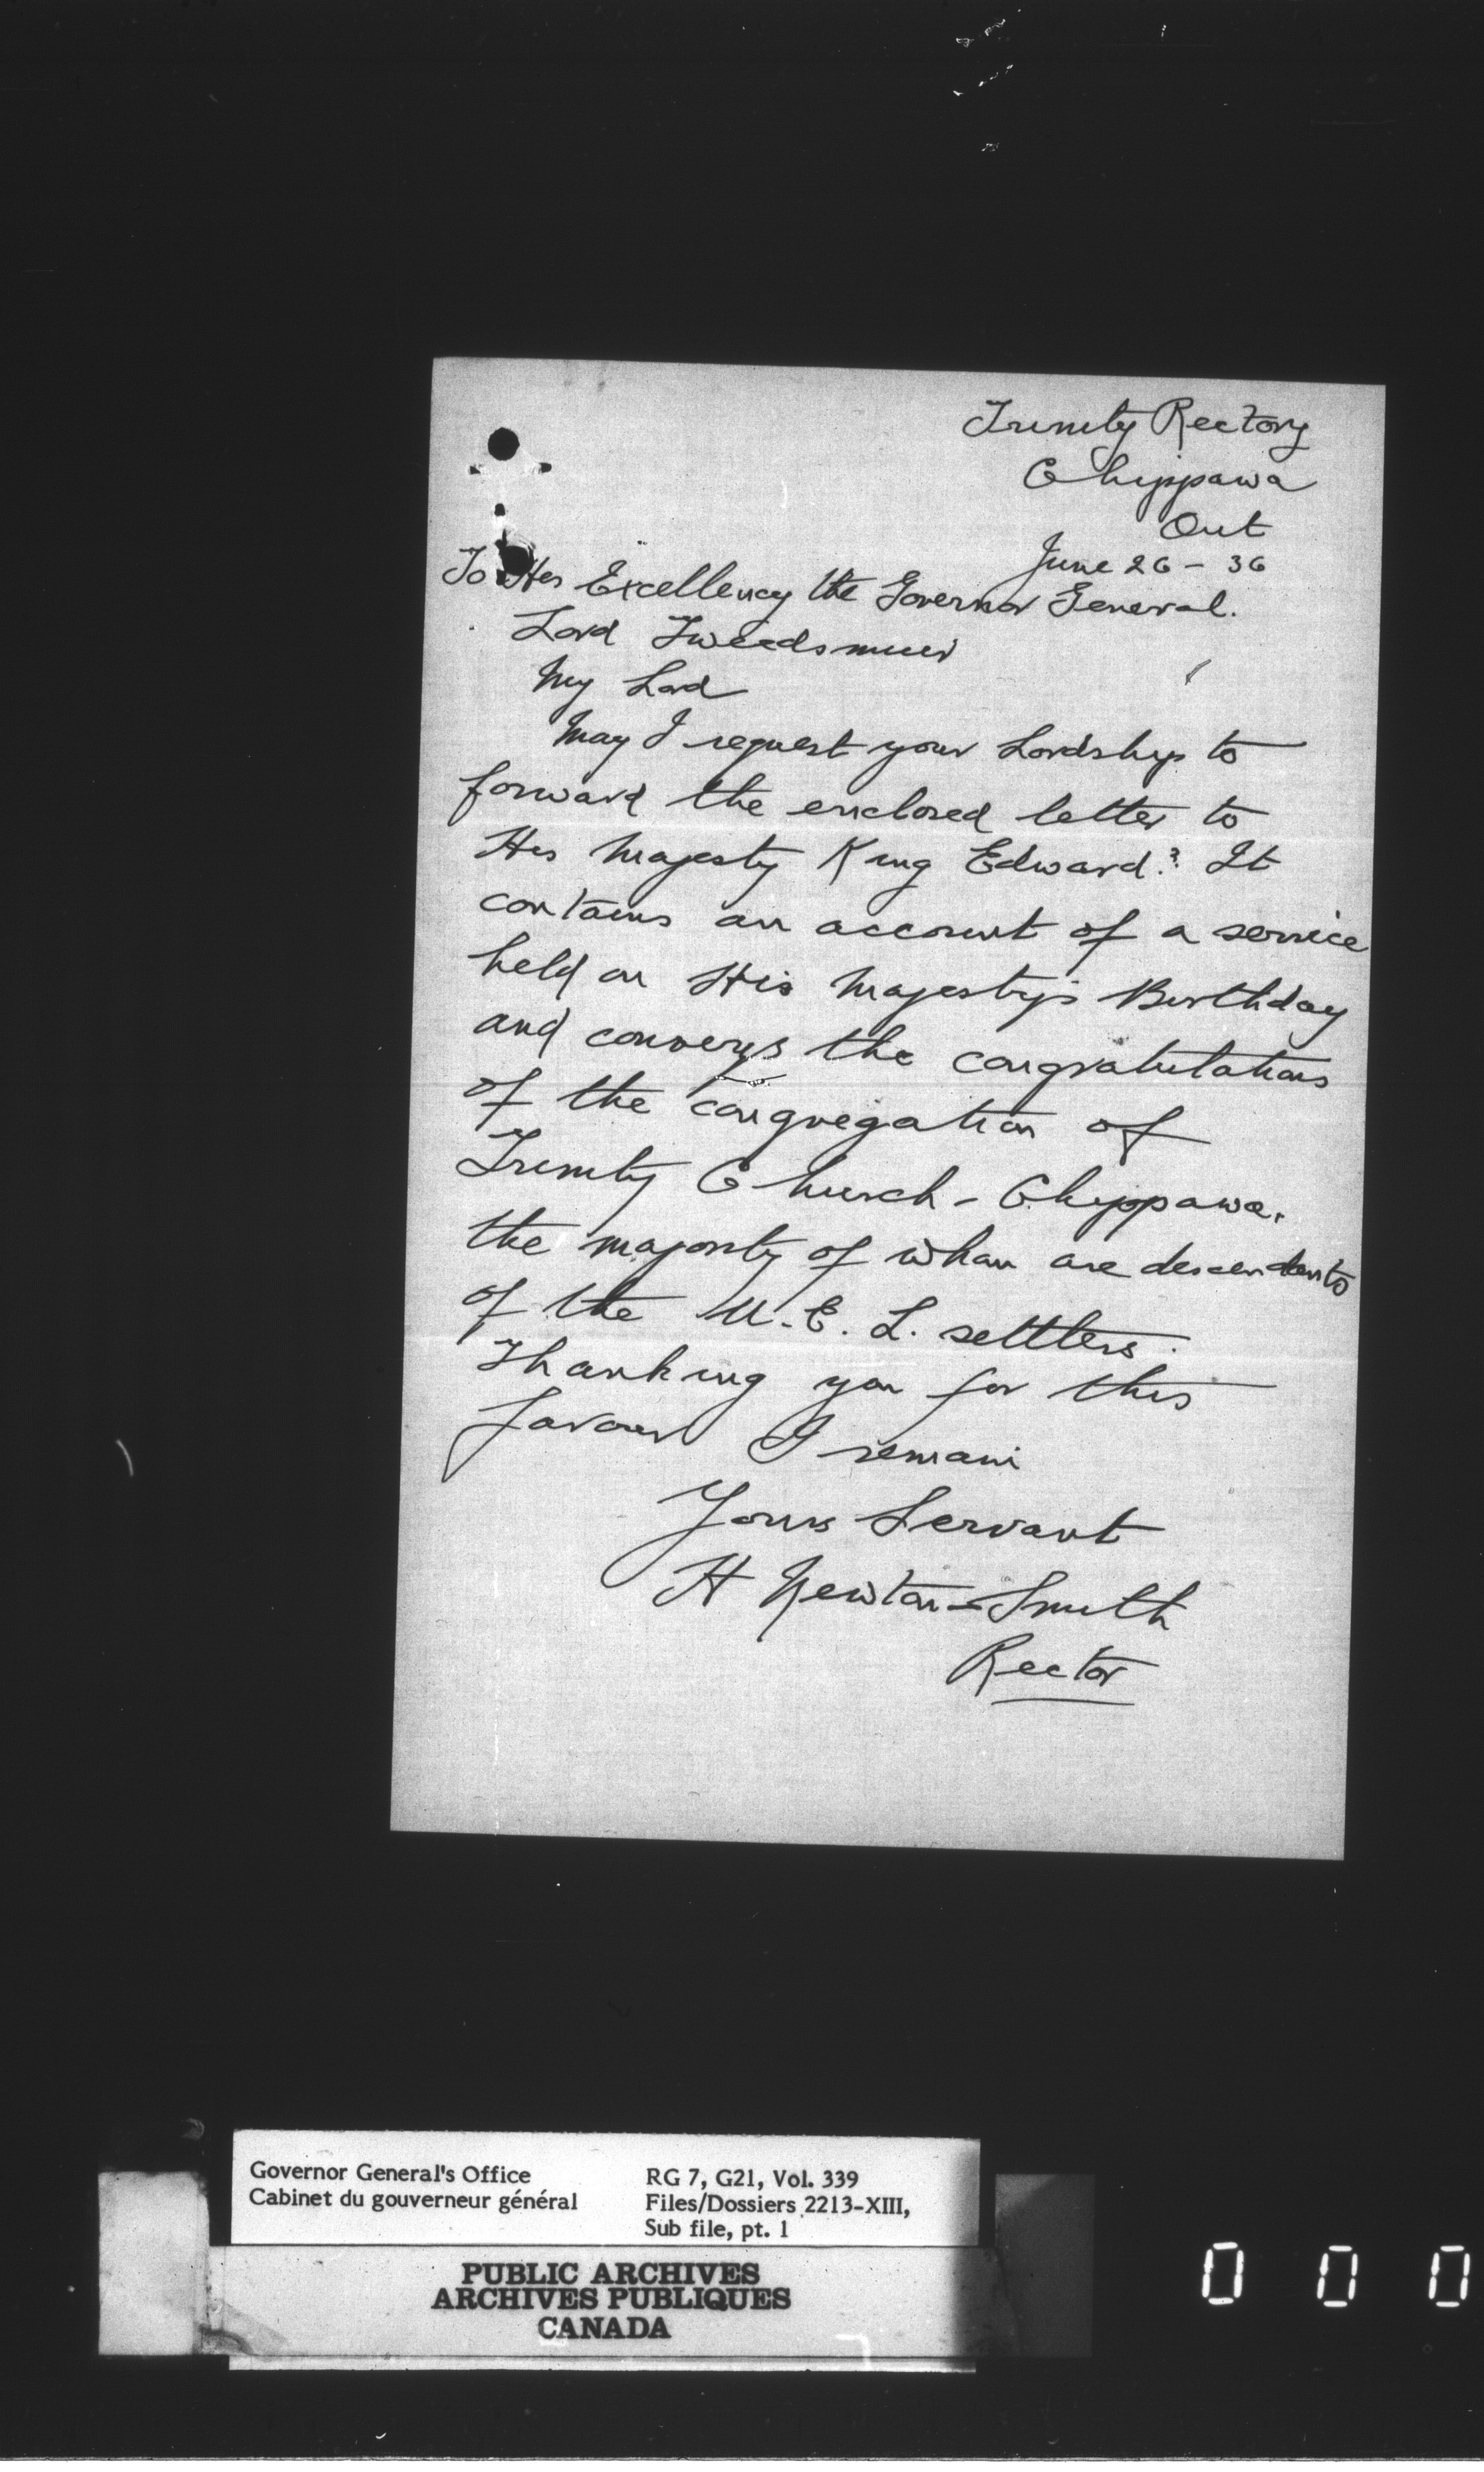 Trinity Rectory
Chippawa
Ont
June 26 - 36
To His Excellency the Governor General.
Lord Tweedsmuir
My Lord
May I request your Lordship to
forward the enclosed letter to
His Majesty King Edward? It
contains an account of a service
held on His Majesty's Birthday
and conveys the congratulations
of the congregation of
Trinity Church - Chippawa.
the majority of whom are descendents
of the U.E.L. settlers.
Thanking you for this
favour I remain
Yours Servant
H Newton-Smith
Rector
Governor General's Office
Cabinet du gouverneur général
RG 7, G21, Vol. 339
Files/Dossiers 2213-XIII,
Sub file, pt. 1
PUBLIC ARCHIVES
ARCHIVES PUBLIQUES
CANADA
0 0 0